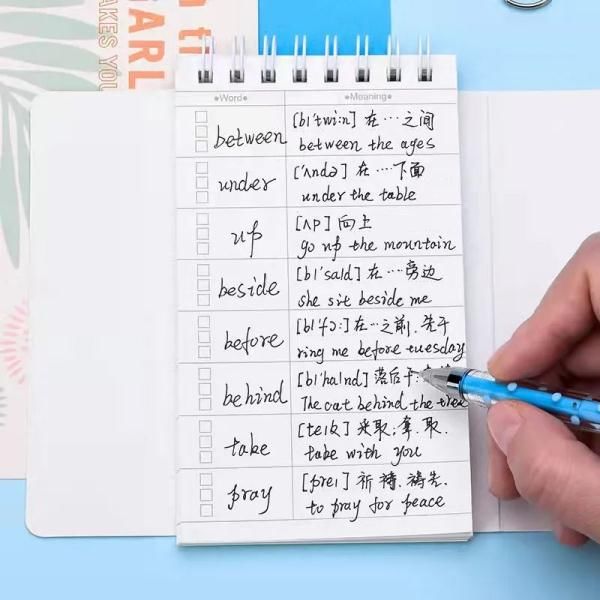 GARL
AKES YOU
Word Meaning
between [bI'twi:n] 在…之间
between the ages
under ['ʌndə] 在…下面
under the table
up [ʌp] 向上
go up the mountain
beside [bI'saId] 在…旁边
she sit beside me
before [bI'fɔ:] 在…之前.先于
ring me before tuesday
behind [bI'haInd] 落后于:
The cat behind the tree
take [teIk] 采取;拿.取.
take with you
pray [preI] 祈祷.祷告.
to pray for peace